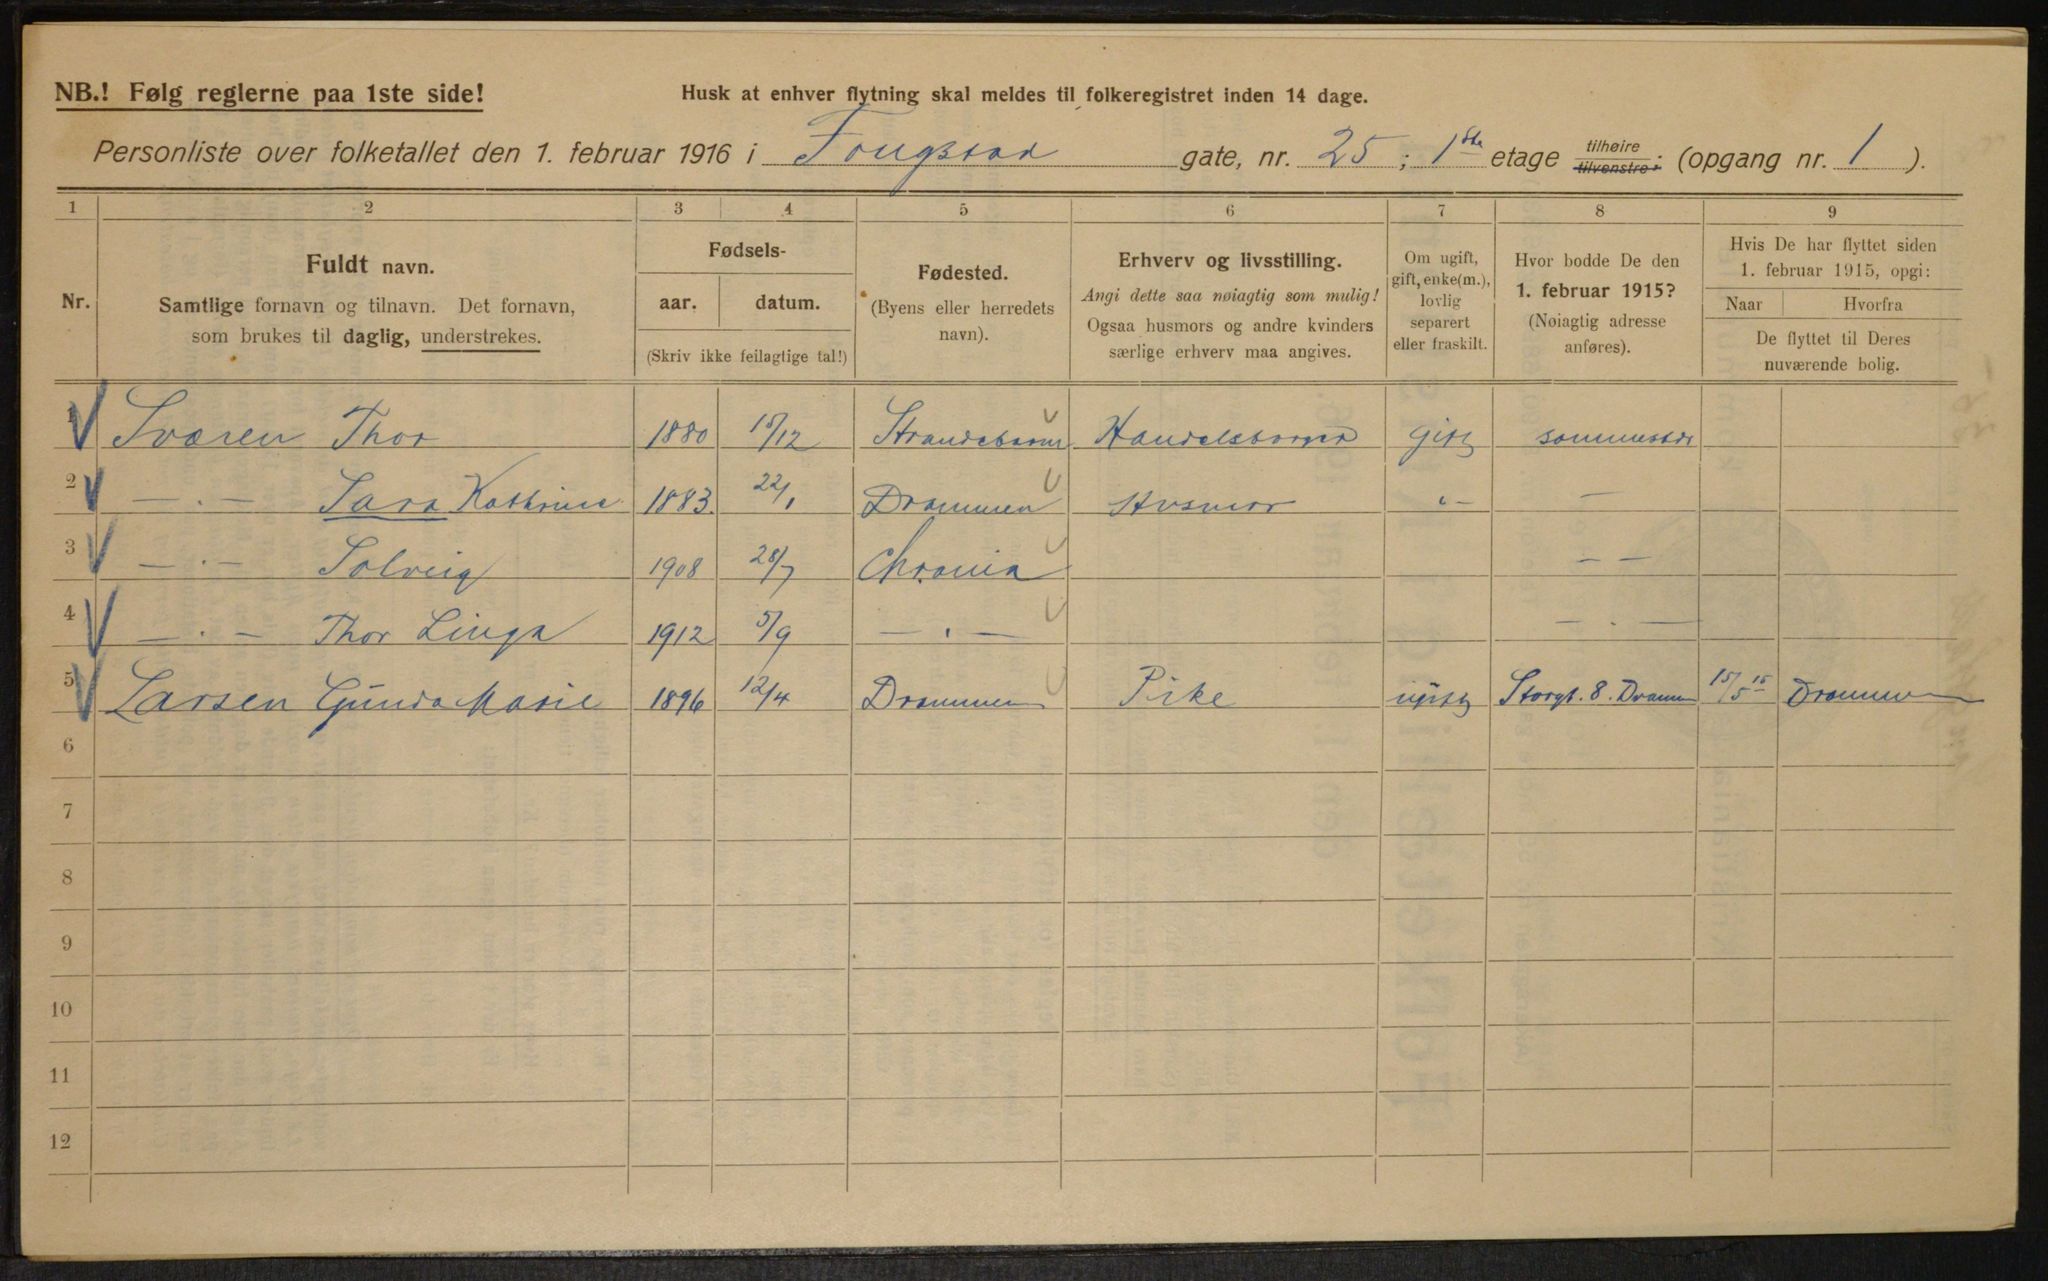 NB.! Følg reglerne paa 1ste side!
Husk at enhver flytning skal meldes til folkeregistret inden 14 dage.
Personliste over folketallet den 1. februar 1916 i Fougstad gate, nr. 25 ; 1ste etage tilhøire tilvenstre; (opgang nr. 1 ).
1 2 3 4 5 6 7 8 9
Nr.
Fuldt navn.
Samtlige fornavn og tilnavn. Det fornavn,
som brukes til daglig, understrekes.
Fødsels-
aar. datum.
(Skriv ikke feilagtige tal!)
Fødested.
(Byens eller herredets
navn).
Erhverv og livsstilling.
Angi dette saa nøiagtig som mulig!
Ogsaa husmors og andre kvinders
særlige erhverv maa angives.
Om ugift,
gift, enke(m.),
lovlig
separert
eller fraskilt.
Hvor bodde De den
1. februar 1915?
(Nøiagtig adresse
anføres).
Hvis De har flyttet siden
1. februar 1915, opgi:
Naar Hvorfra
De flyttet til Deres
nuværende bolig.
1 Sværen Thor 1880 15/12 Strandebarm Handelsborger gift sammested
2 — . — Sara Kathrine 1883. 22/1 Drammen Husmor " — —
3 — . — Solveig 1908 28/7 Chrania — —
4 — . — Thor Linga 1912 5/9 — . — — . —
5 Larsen Gunda Marie 1896 12/4 Drammen Pike ugift Storgt. 8. Dramm 15/5 15 Drammen
6
7
8
9
10
11
12